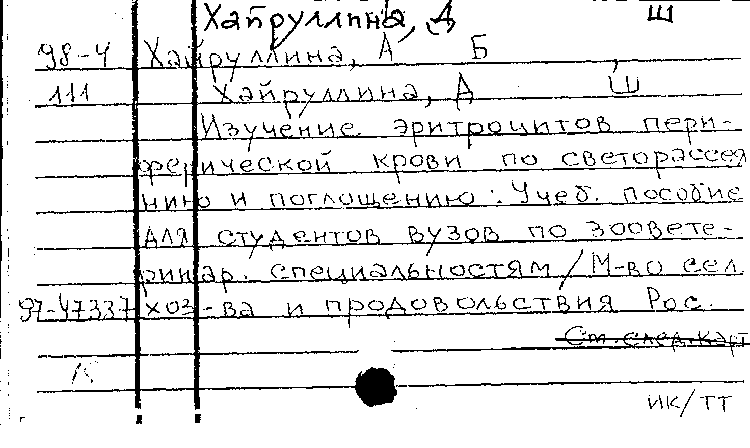 Хайруллина, А Ш
98-4 Хайруллина, А Б
111 Хайруллина, А Ш
Изучение эритроцитов пери-
ферической крови по светорассея
нию и поглощению: Учеб. пособие
для студентов вузов по зоовете-
ринар. специальностям/М-во сел.
97-47337 хоз-ва и продовольствия Рос.
См.след.карт
К
ИК/ТТ